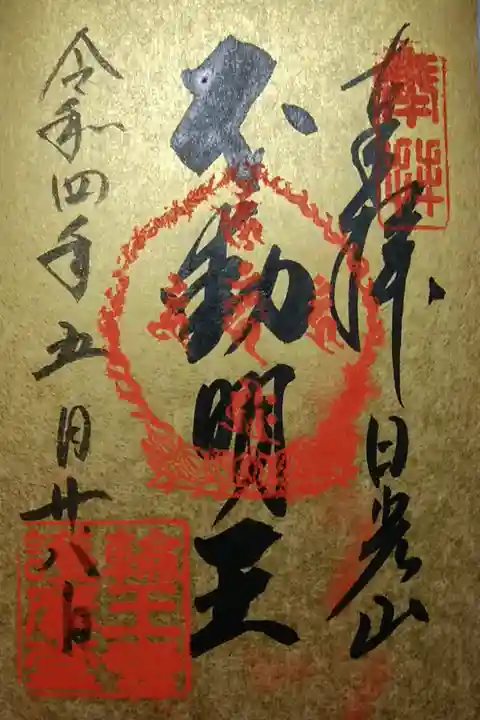 奉拝 日光山
不動明王
令和四年五月廿八日